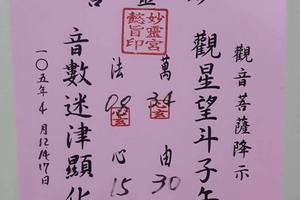 觀音菩薩降示
觀星望斗子午
萬 34 由 30
妙靈宮
懿旨印
法 08 心 15
音數迷津顯化
一〇五年4月12、14、17日